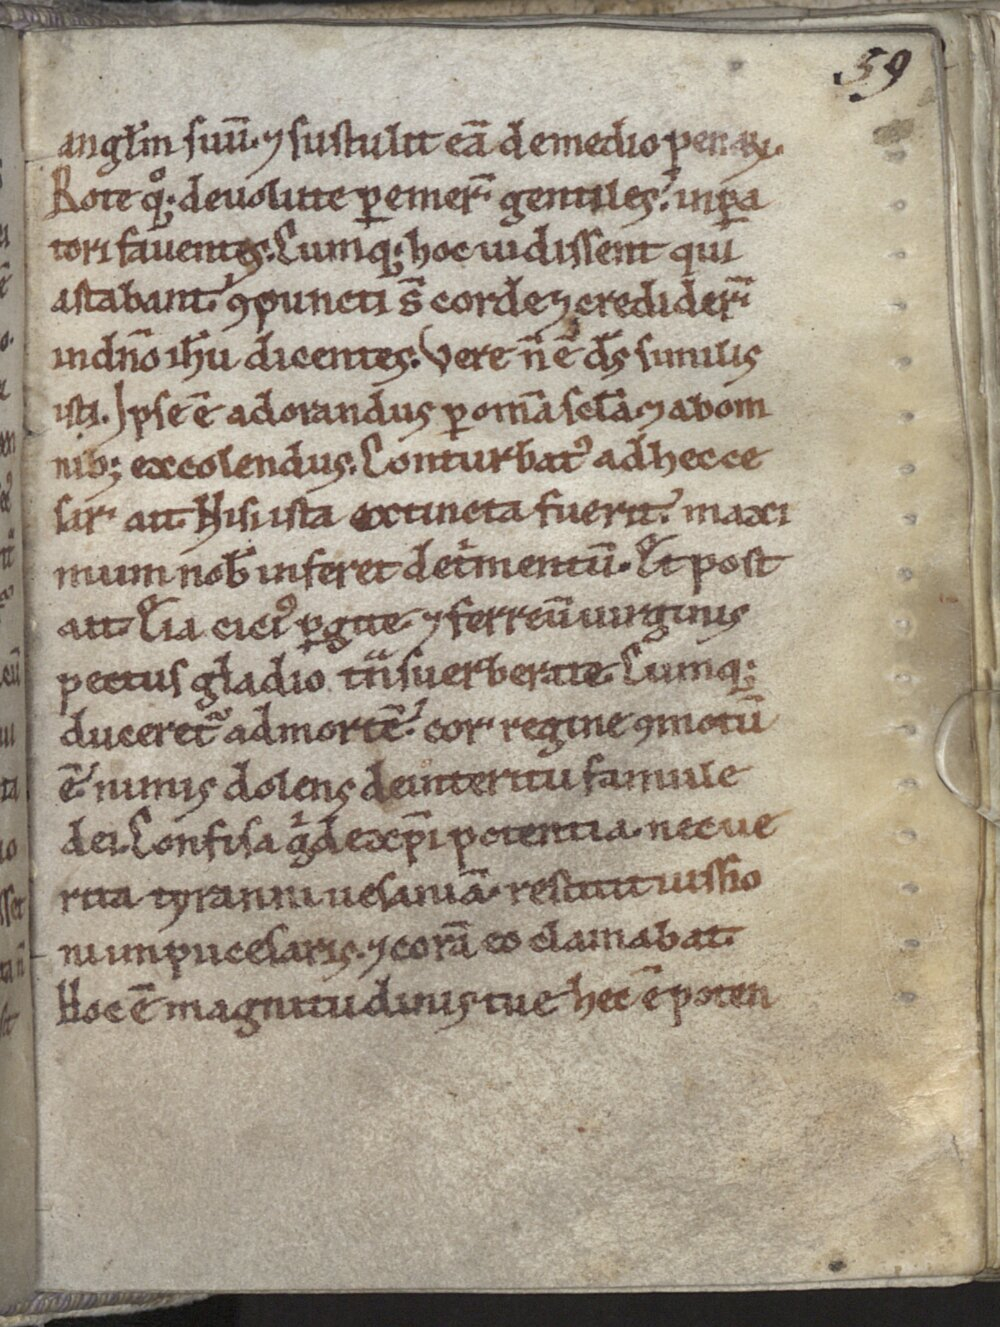 59
angl̄m suū. ⁊ sustulit eā de medio penaꝝ.
Rote qͦꝫ. deuolute ꝑemer̄ gentiles. inꝑa
tori fauentes. Cumqꝫ. hoc uidissent qui
astabant. ꝯpuncti s̄ corde ⁊ credider̄
in dn̄o ih̄u dicentes. Vere n̄ ē ds̄ similis
isti. Ipse ē adorandus ꝑ om̄a scl̄a ⁊ ab om
nibꝫ excolendus. Conturbatꝰ ad hec ce
sar ait. Nisi ista extincta fuerit. maxi
mum nob̄ inferet det̍mentū. Et post
ait. ciciꝰ ꝑgite ⁊ ferreū uirginis
pectus gladio tn̄suerberate. Cumqꝫ
duceret᷑ ad mortē. cor regine ꝯmotū
ē. nimis dolens de interitu famule
dei. Confisa g̍ de xp̄i potentia. nec ue
rita tyranni uesaniā. restitit uissio
ni inpu cesaris. ⁊ corā eo clamabat.
Hoc ē magnitudinis tue hec ē poten